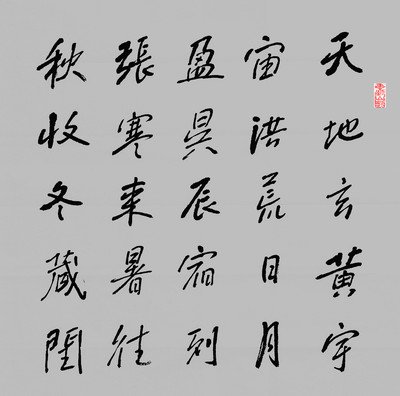 天地玄黃宇
宙洪荒日月
盈昃辰宿列
張寒來暑往
秋收冬藏閏